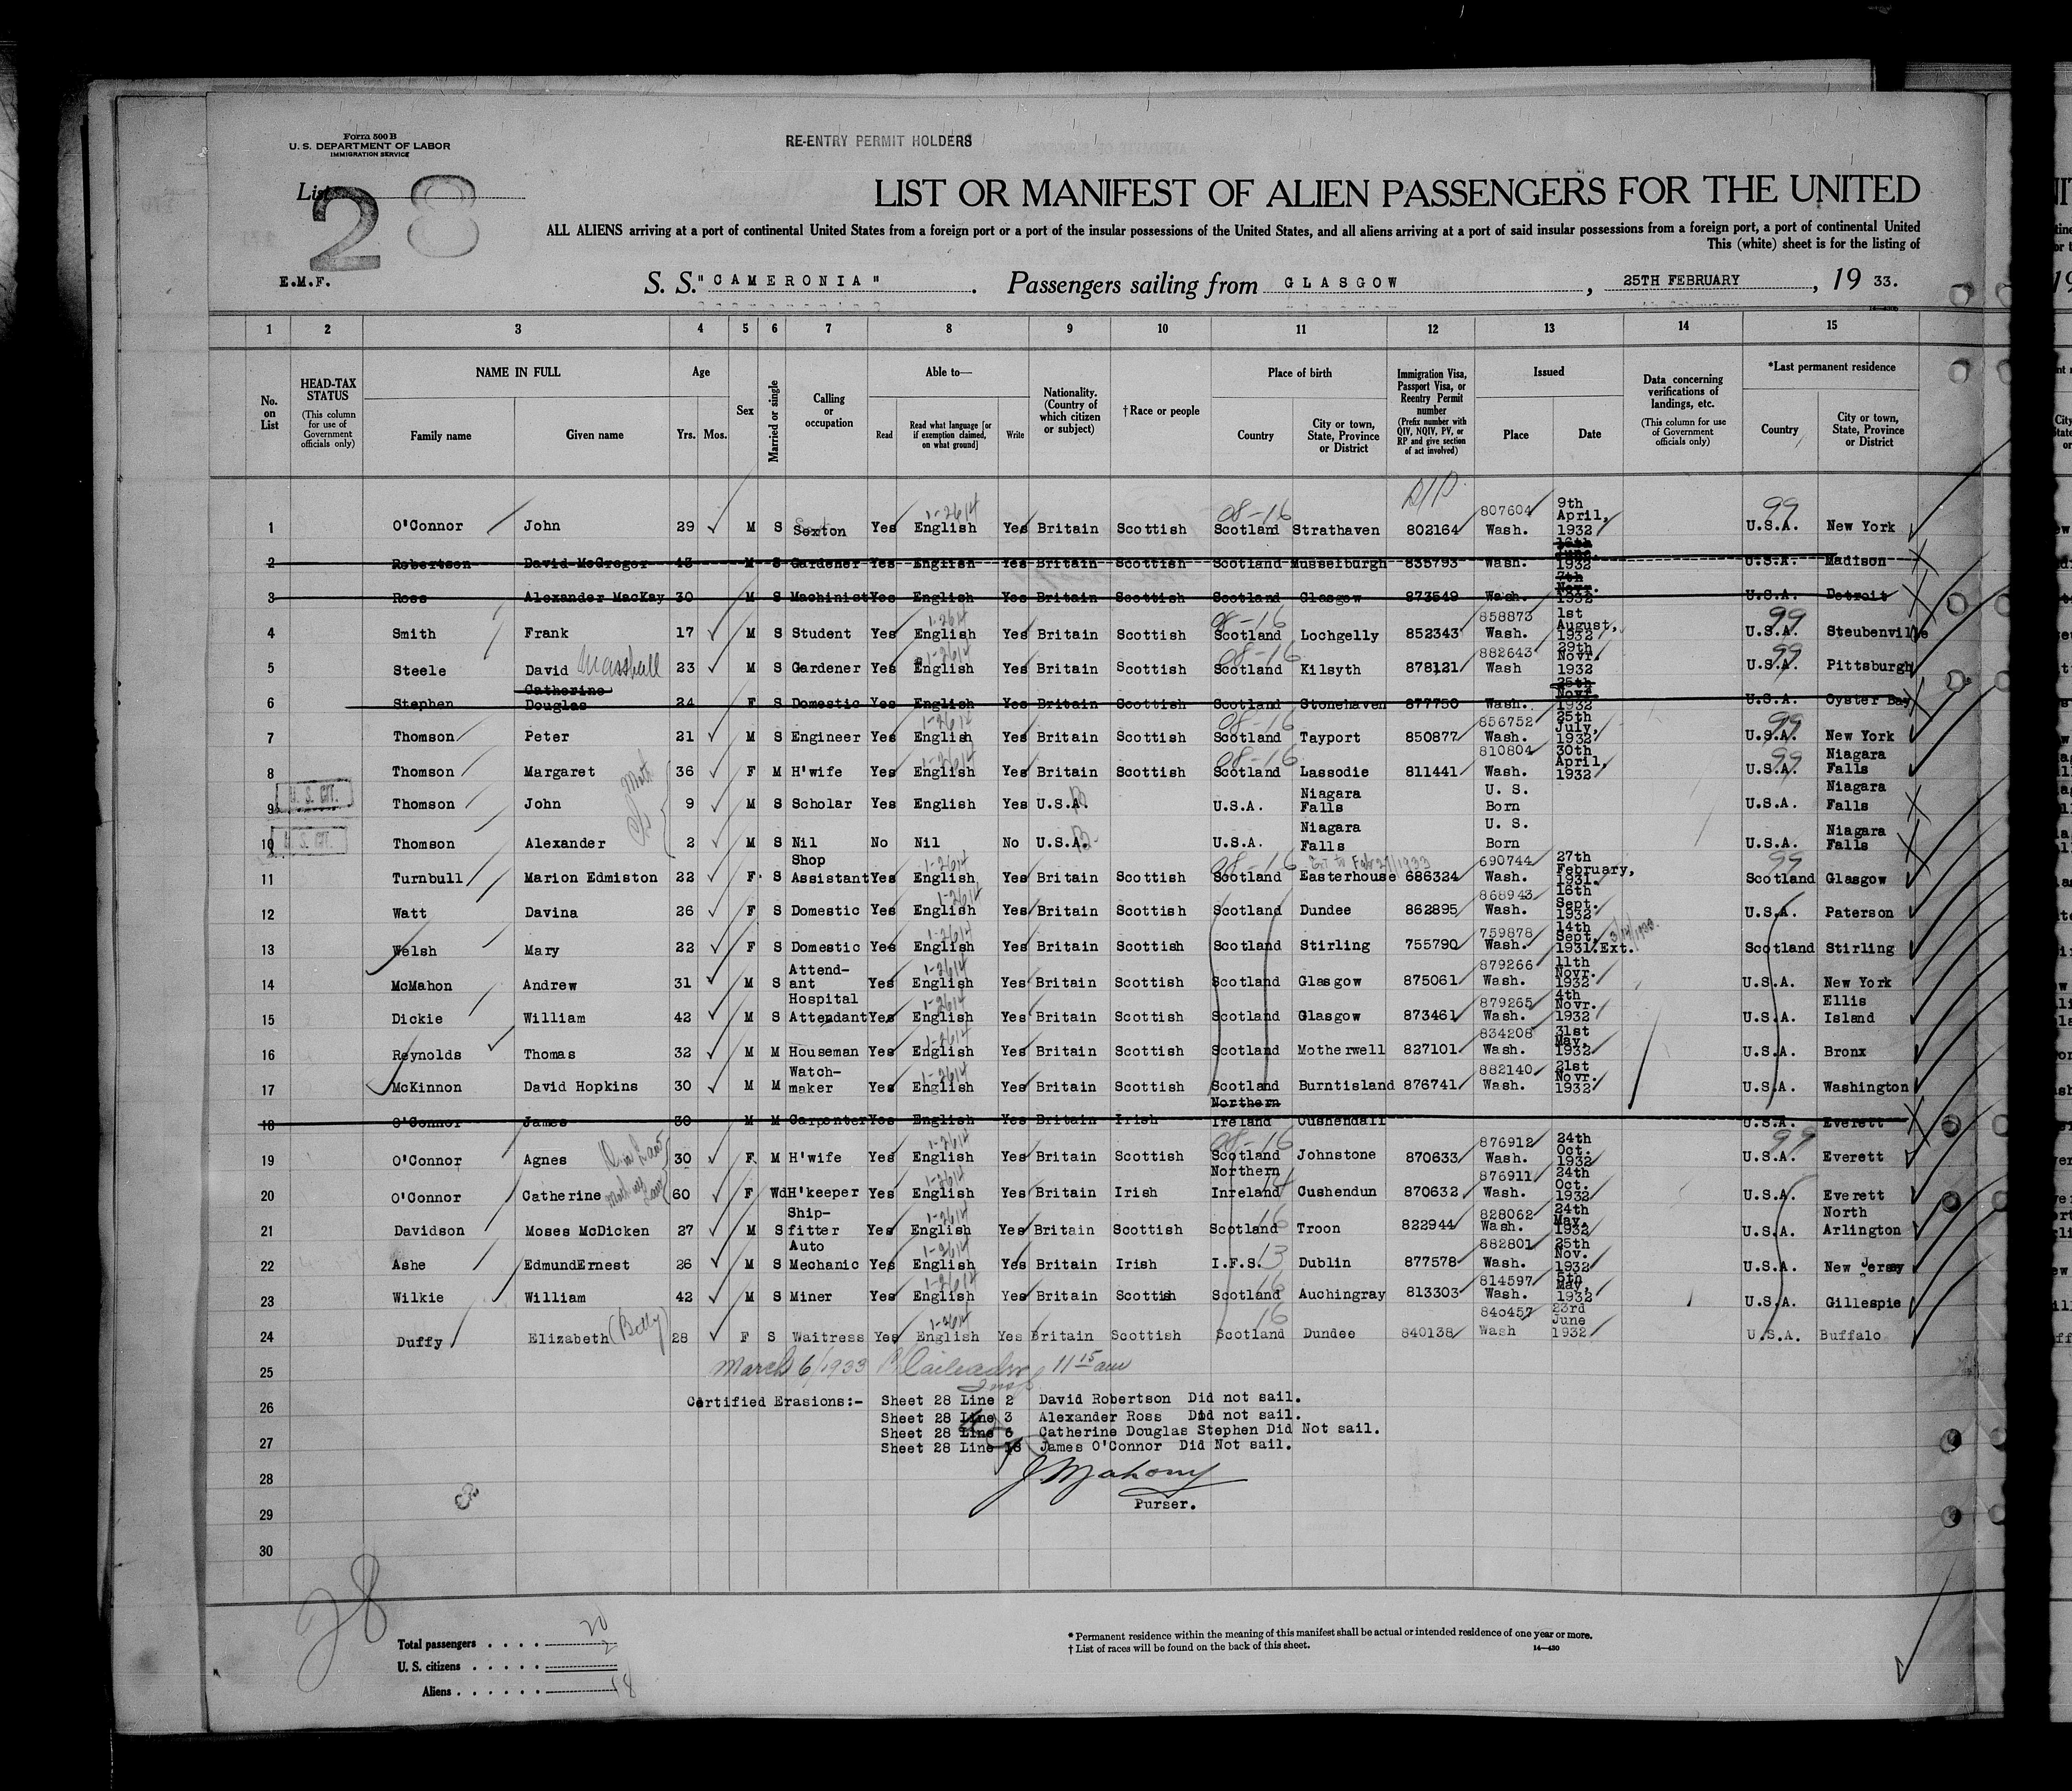 Form 500 B
U. S. DEPARTMENT OF LABOR
IMMIGRATION SERVICE
RE-ENTRY PERMIT HOLDERS
List 28
LIST OR MANIFEST OF ALIEN PASSENGERS FOR THE UNITED
ALL ALIENS arriving at a port of continental United States from a foreign port or a port of the insular possessions of the United States, and all aliens arriving at a port of said insular possessions from a foreign port, a port of continental United
This (white) sheet is for the listing of
E.M.F.
S. S. "CAMERONIA". Passengers sailing from GLASGOW, 25TH FEBRUARY, 19 33.
1 2 3 4 5 6 7 8 9 10 11 12 13 14 15
No. on List
HEAD-TAX STATUS (This column for use of Government officials only)
NAME IN FULL Family name Given name
Age Yrs. Mos.
Sex
Married or single
Calling or occupation
Able to— Read Read what language [or if exemption claimed, on what ground] Write
Nationality. (Country of which citizen or subject)
†Race or people
Place of birth Country City or town, State, Province or District
Immigration Visa, Passport Visa, or Reentry Permit number (Prefix number with QIV, NQIV, PV, or RP and give section of act involved)
Issued Place Date
Data concerning verifications of landings, etc. (This column for use of Government officials only)
*Last permanent residence Country City or town, State, Province or District
1 O'Connor John 29 M S Sexton Yes English 1-2614 Yes Britain Scottish Scotland 08-16 Strathaven 802164 807604 Wash. 9th April, 1932 99 U.S.A. New York
2 Robertson David McGregor 43 M S Gardener Yes English Yes Britain Scottish Scotland Musselburgh 835793 Wash. 16th June. 1932 U.S.A. Madison
3 Ross Alexander MacKay 30 M S Machinist Yes English Yes Britain Scottish Scotland Glasgow 873549 Wash. 7th Novr. 1932 U.S.A. Detroit
4 Smith Frank 17 M S Student Yes English 1-2614 Yes Britain Scottish Scotland 08-16 Lochgelly 852343 858873 Wash. 1st August, 1932 99 U.S.A. Steubenville
5 Steele David Marshall 23 M S Gardener Yes English 1-2614 Yes Britain Scottish Scotland 08-16 Kilsyth 878121 882643 Wash 29th Novr. 1932 99 U.S.A. Pittsburgh
6 Stephen Catherine Douglas 24 F S Domestic Yes English Yes Britain Scottish Scotland Stonehaven 877750 Wash. 25th Novr. 1932 U.S.A. Oyster Bay
7 Thomson Peter 21 M S Engineer Yes English 1-2614 Yes Britain Scottish Scotland 08-16 Tayport 850877 856752 Wash. 25th July, 1932 99 U.S.A. New York
8 Thomson Margaret 36 F M H'wife Yes English 1-2614 Yes Britain Scottish Scotland 08-16 Lassodie 811441 810804 Wash. 30th April, 1932 99 U.S.A. Niagara Falls
9 U. S. CIT. Thomson John 9 M S Scholar Yes English Yes U.S.A. U.S.A. Niagara Falls U. S. Born U.S.A. Niagara Falls
10 U. S. CIT. Thomson Alexander 2 M S Nil No Nil No U.S.A. U.S.A. Niagara Falls U. S. Born U.S.A. Niagara Falls
11 Turnbull Marion Edmiston 22 F S Shop Assistant Yes English 1-2614 Yes Britain Scottish Scotland 08-16 Easterhouse 686324 Ext to Feb 27/1933 690744 Wash. 27th February, 1931. 99 Scotland Glasgow
12 Watt Davina 26 F S Domestic Yes English 1-2614 Yes Britain Scottish Scotland Dundee 862895 868943 Wash. 16th Sept. 1932 U.S.A. Paterson
13 Welsh Mary 22 F S Domestic Yes English 1-2614 Yes Britain Scottish Scotland Stirling 755790 759878 Wash. 14th Sept. 1931. Ext. Scotland Stirling
14 McMahon Andrew 31 M S Attend-ant Yes English 1-2614 Yes Britain Scottish Scotland Glasgow 875061 879266 Wash. 11th Novr. 1932 U.S.A. New York
15 Dickie William 42 M S Hospital Attendant Yes English 1-2614 Yes Britain Scottish Scotland Glasgow 873461 879265 Wash. 4th Novr. 1932 U.S.A. Ellis Island
16 Reynolds Thomas 32 M M Houseman Yes English 1-2614 Yes Britain Scottish Scotland Motherwell 827101 834208 Wash. 31st May, 1932 U.S.A. Bronx
17 McKinnon David Hopkins 30 M M Watch-maker Yes English 1-2614 Yes Britain Scottish Scotland Burntisland 876741 882140 Wash. 21st Novr. 1932 U.S.A. Washington
18 O'Connor James 30 M M Carpenter Yes English Yes Britain Irish Northern Ireland Cushendall U.S.A. Everett
19 O'Connor Agnes 30 F M H'wife Yes English 1-2614 Yes Britain Scottish Scotland 08-16 Johnstone 870633 876912 Wash. 24th Oct. 1932 99 U.S.A. Everett
20 O'Connor Catherine 60 F Wd H'keeper Yes English 1-2614 Yes Britain Irish Northern Inreland Cushendun 870632 876911 Wash. 24th Oct. 1932 U.S.A. Everett
21 Davidson Moses McDicken 27 M S Ship-fitter Yes English 1-2614 Yes Britain Scottish Scotland 16 Troon 822944 828062 Wash. 24th May, 1932 U.S.A. North Arlington
22 Ashe EdmundErnest 26 M S Auto Mechanic Yes English 1-2614 Yes Britain Irish I.F.S. 13 Dublin 877578 882801 Wash. 25th Nov. 1932 U.S.A. New Jersey
23 Wilkie William 42 M S Miner Yes English 1-2614 Yes Britain Scottish Scotland 16 Auchingray 813303 814597 Wash. 5th May, 1932 U.S.A. Gillespie
24 Duffy Elizabeth (Betty) 28 F S Waitress Yes English 1-2614 Yes Britain Scottish Scotland 16 Dundee 840138 840457 Wash 23rd June 1932 U.S.A. Buffalo
25 March 6/1933 11 15 am
26 Certified Erasions:- Sheet 28 Line 2 David Robertson Did not sail.
Sheet 28 Line 3 Alexander Ross Did not sail.
27 Sheet 28 Line 6 Catherine Douglas Stephen Did Not sail.
Sheet 28 Line 18 James O'Connor Did Not sail.
28 J Mahony
29 Purser.
30
28
Total passengers . . . . 20
U. S. citizens . . . . . 2
Aliens . . . . . . 18
* Permanent residence within the meaning of this manifest shall be actual or intended residence of one year or more.
† List of races will be found on the back of this sheet.
14—430